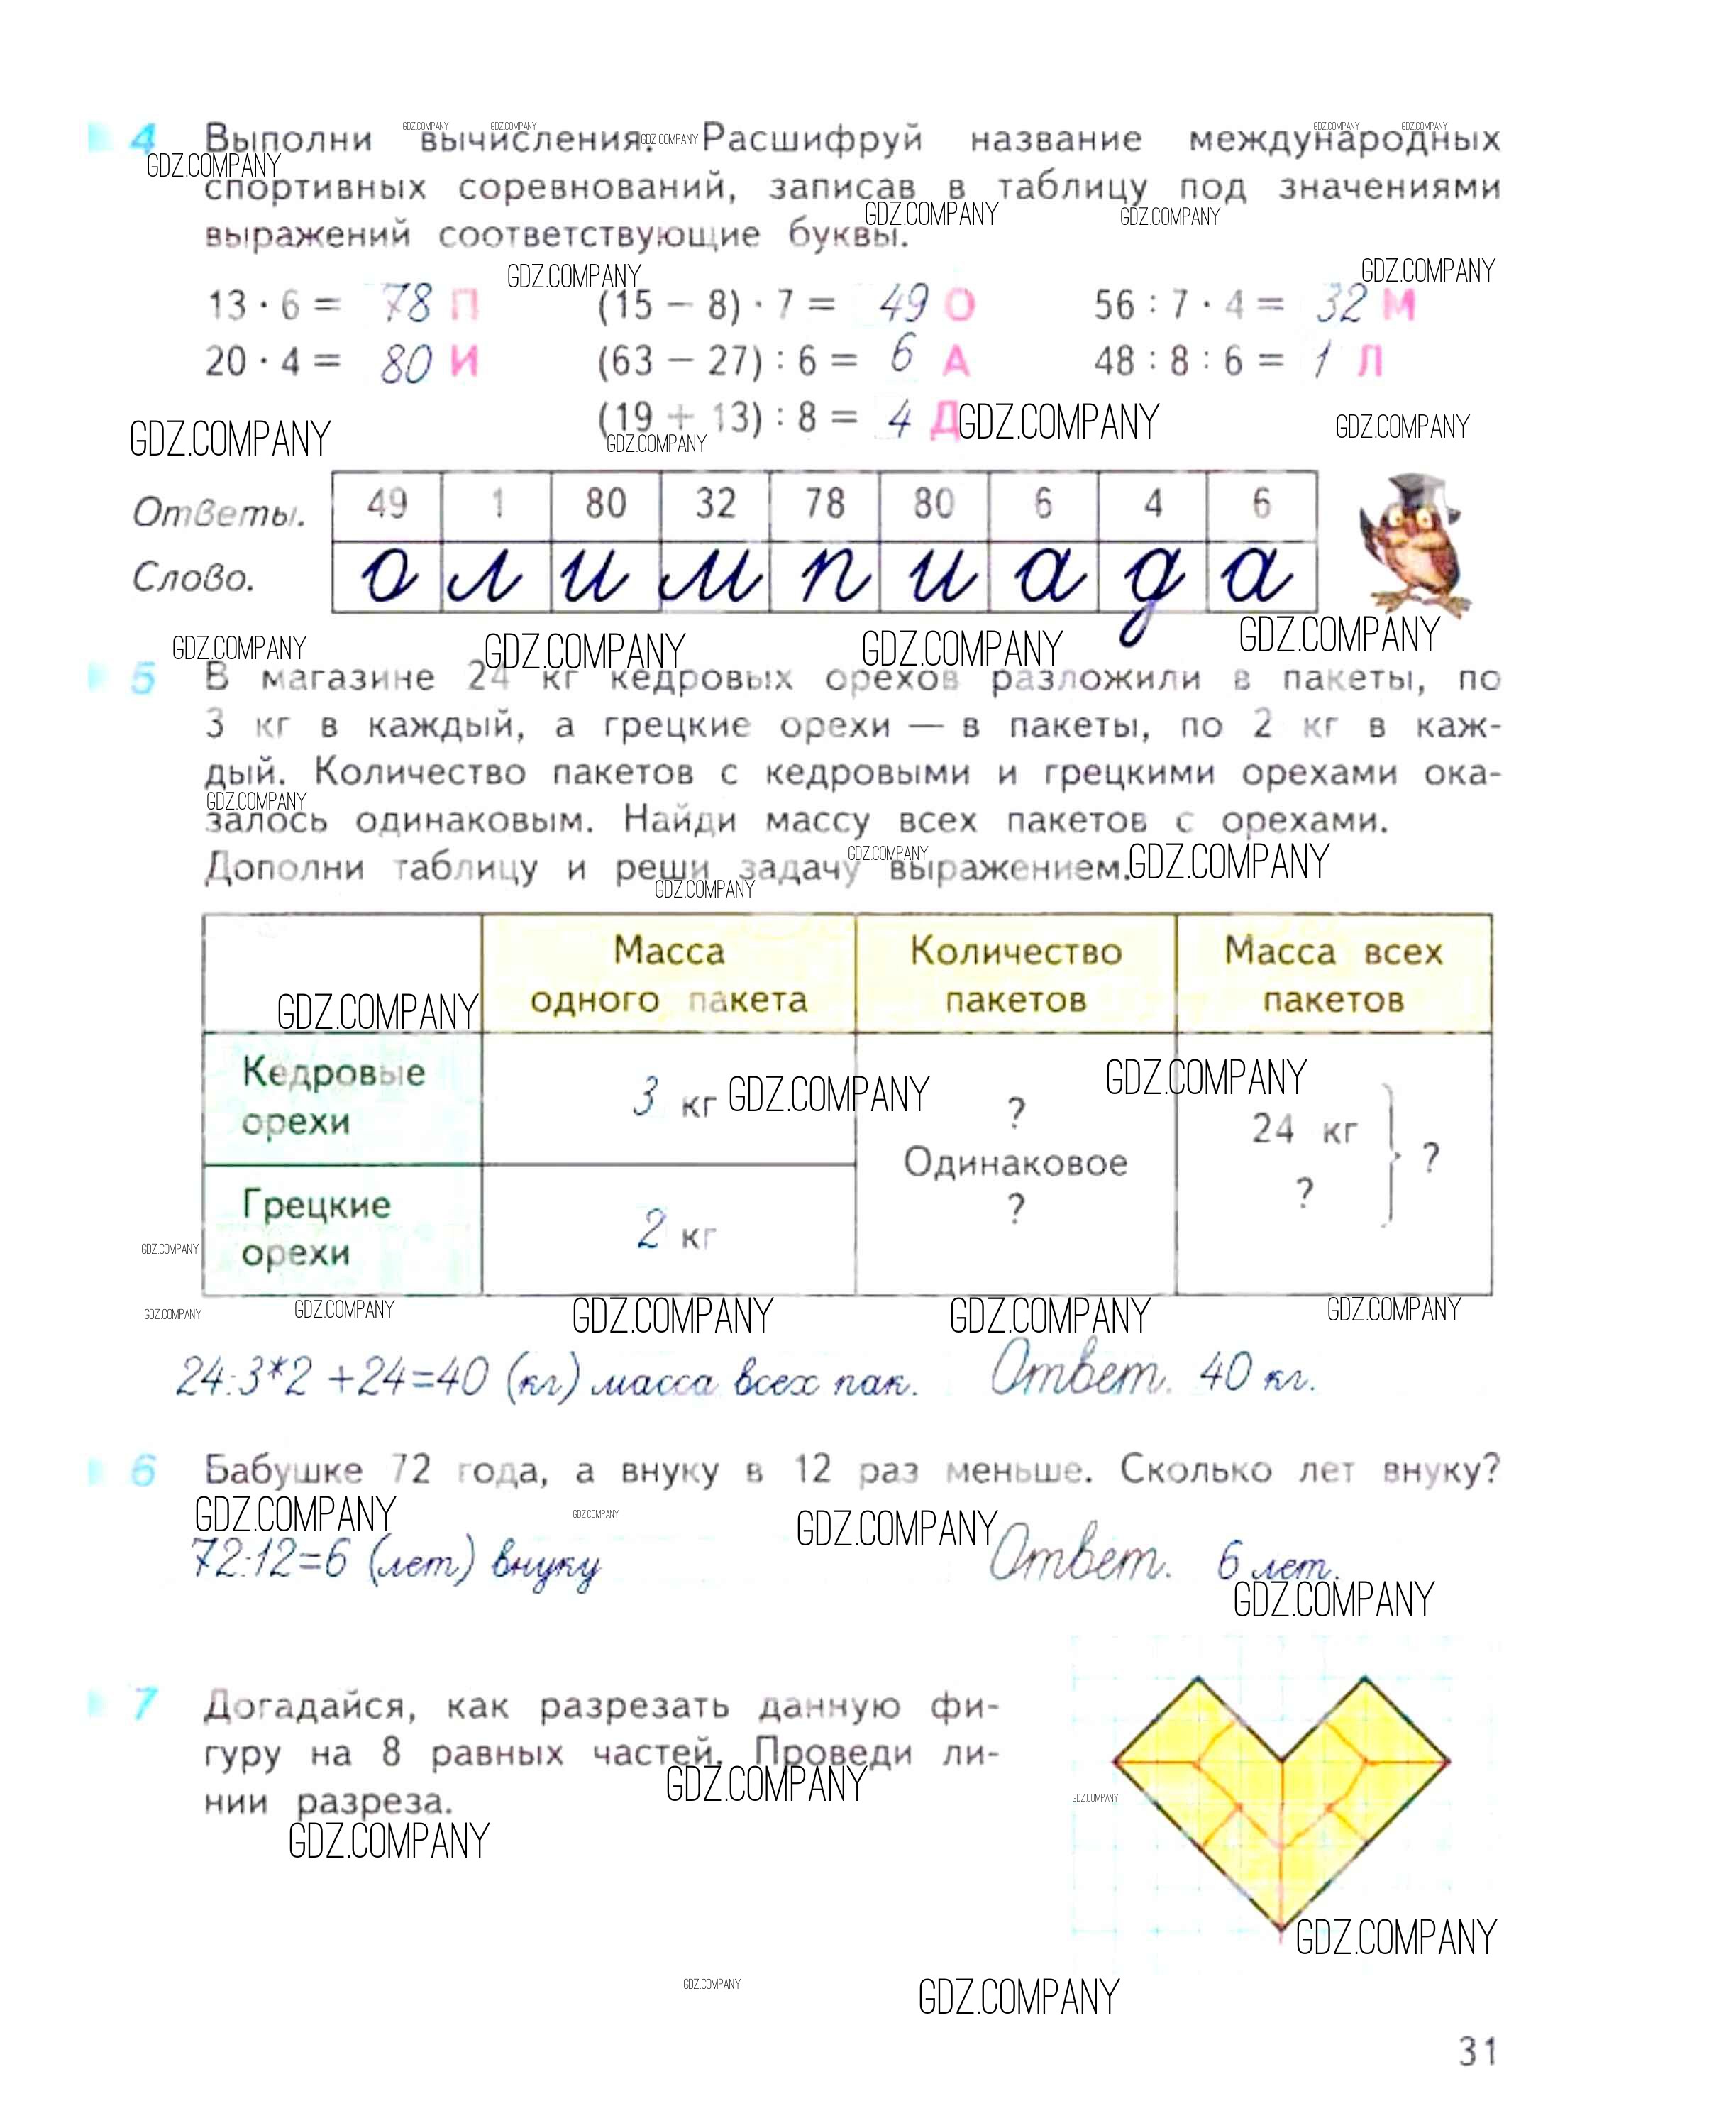 4 Выполни вычисления. Расшифруй название международных
спортивных соревнований, записав в таблицу под значениями
выражений соответствующие буквы.
13 · 6 = 78 П (15 − 8) · 7 = 49 О 56 : 7 · 4 = 32 М
20 · 4 = 80 И (63 − 27) : 6 = 6 А 48 : 8 : 6 = 1 Л
(19 + 13) : 8 = 4 Д
Ответы. 49 1 80 32 78 80 6 4 6
Слово. о л и м п и а д а
5 В магазине 24 кг кедровых орехов разложили в пакеты, по
3 кг в каждый, а грецкие орехи — в пакеты, по 2 кг в каж-
дый. Количество пакетов с кедровыми и грецкими орехами ока-
залось одинаковым. Найди массу всех пакетов с орехами.
Дополни таблицу и реши задачу выражением.
Масса одного пакета
Количество пакетов
Масса всех пакетов
Кедровые орехи
3 кг
?
Одинаковое
?
24 кг
?
?
Грецкие орехи
2 кг
24:3*2 +24=40 (кг) масса всех пак. Ответ. 40 кг.
6 Бабушке 72 года, а внуку в 12 раз меньше. Сколько лет внуку?
72:12=6 (лет) внуку Ответ. 6 лет.
7 Догадайся, как разрезать данную фи-
гуру на 8 равных частей. Проведи ли-
нии разреза.
31
GDZ.COMPANY